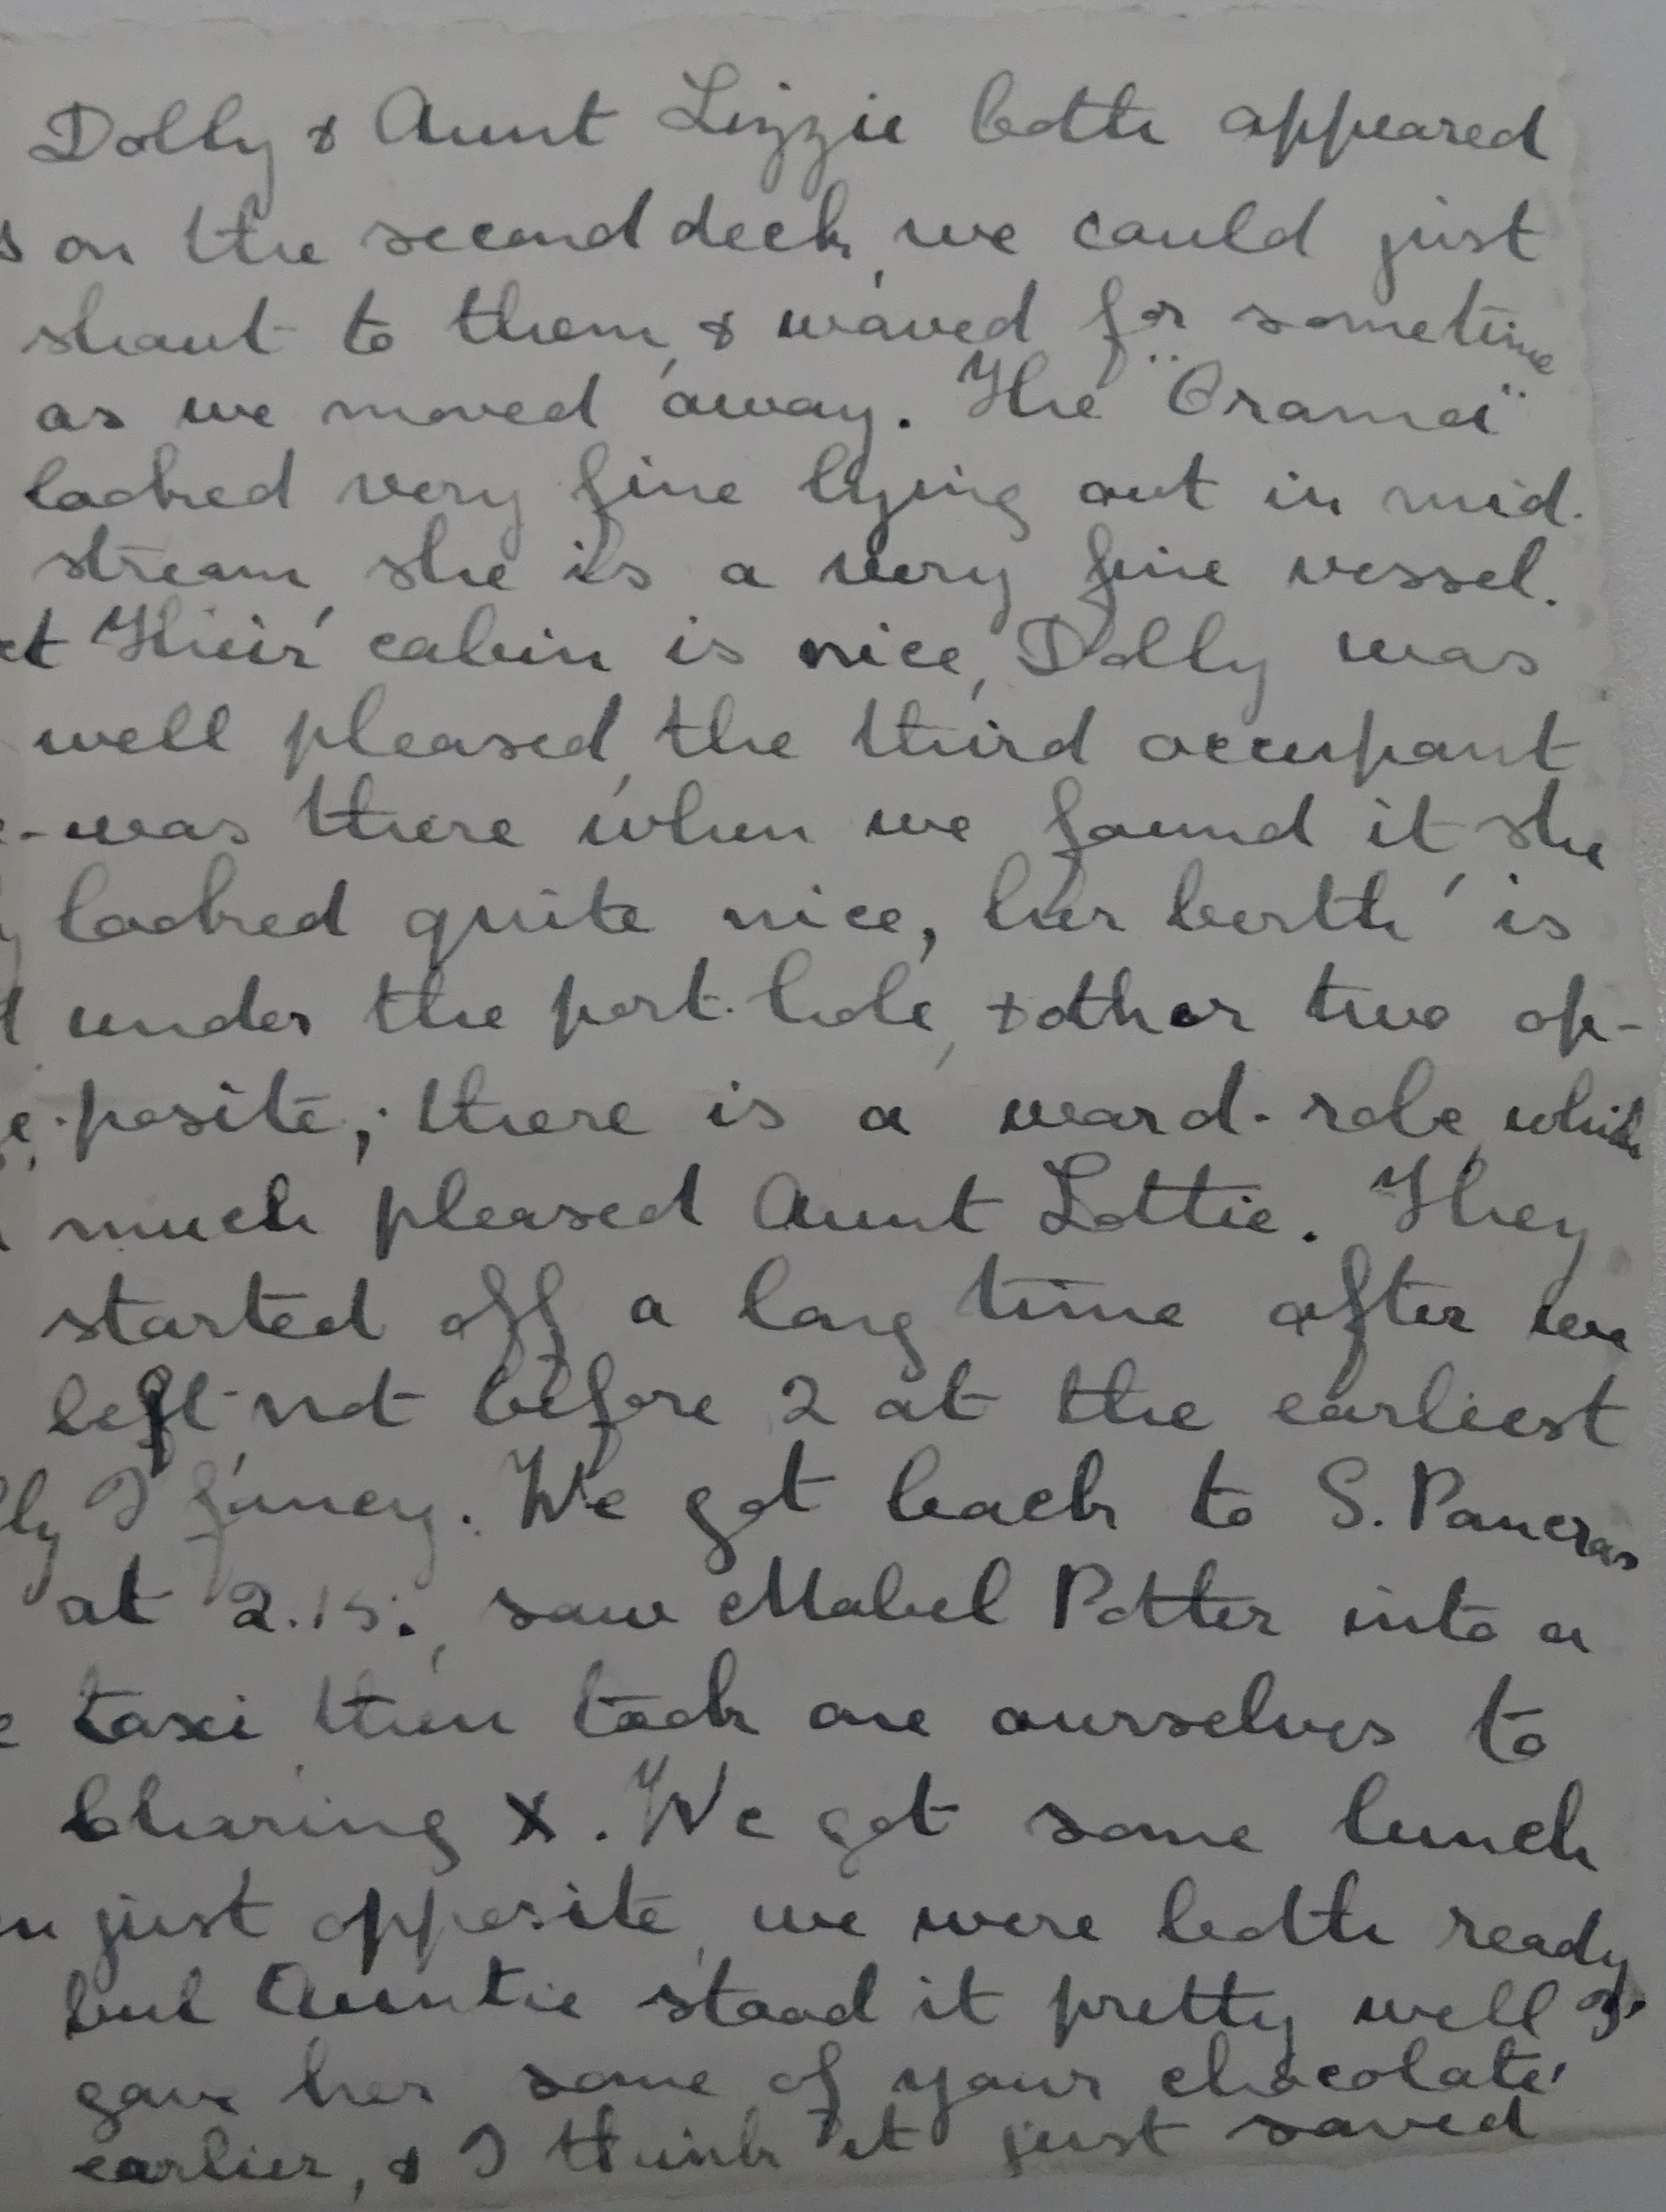 Dolly & Aunt Lizzie both appeared
s on the second deck, we could just
shout to them, & waved for sometime
as we moved away. The "Orama"
looked very fine lying out in mid.
stream, she is a very fine vessel.
ct Their cabin is nice, Dolly was
well pleased, the third occupant
e-was there when we found it, she
y looked quite nice, her berth is
d under the port-hole, & other two op-
e.posite; there is a ward-robe, which
much pleased Aunt Lottie. They
started off a long time after we
left - not before 2 at the earliest
lly I fancy. We got back to S. Pancras
at 2.15., saw Mabel Potter into a
e taxi then took one ourselves to
Charing X. We got some lunch
n just opposite, we were both ready
but Auntie stood it pretty well I
gave her some of your chocolate
earlier, & I think it just saved